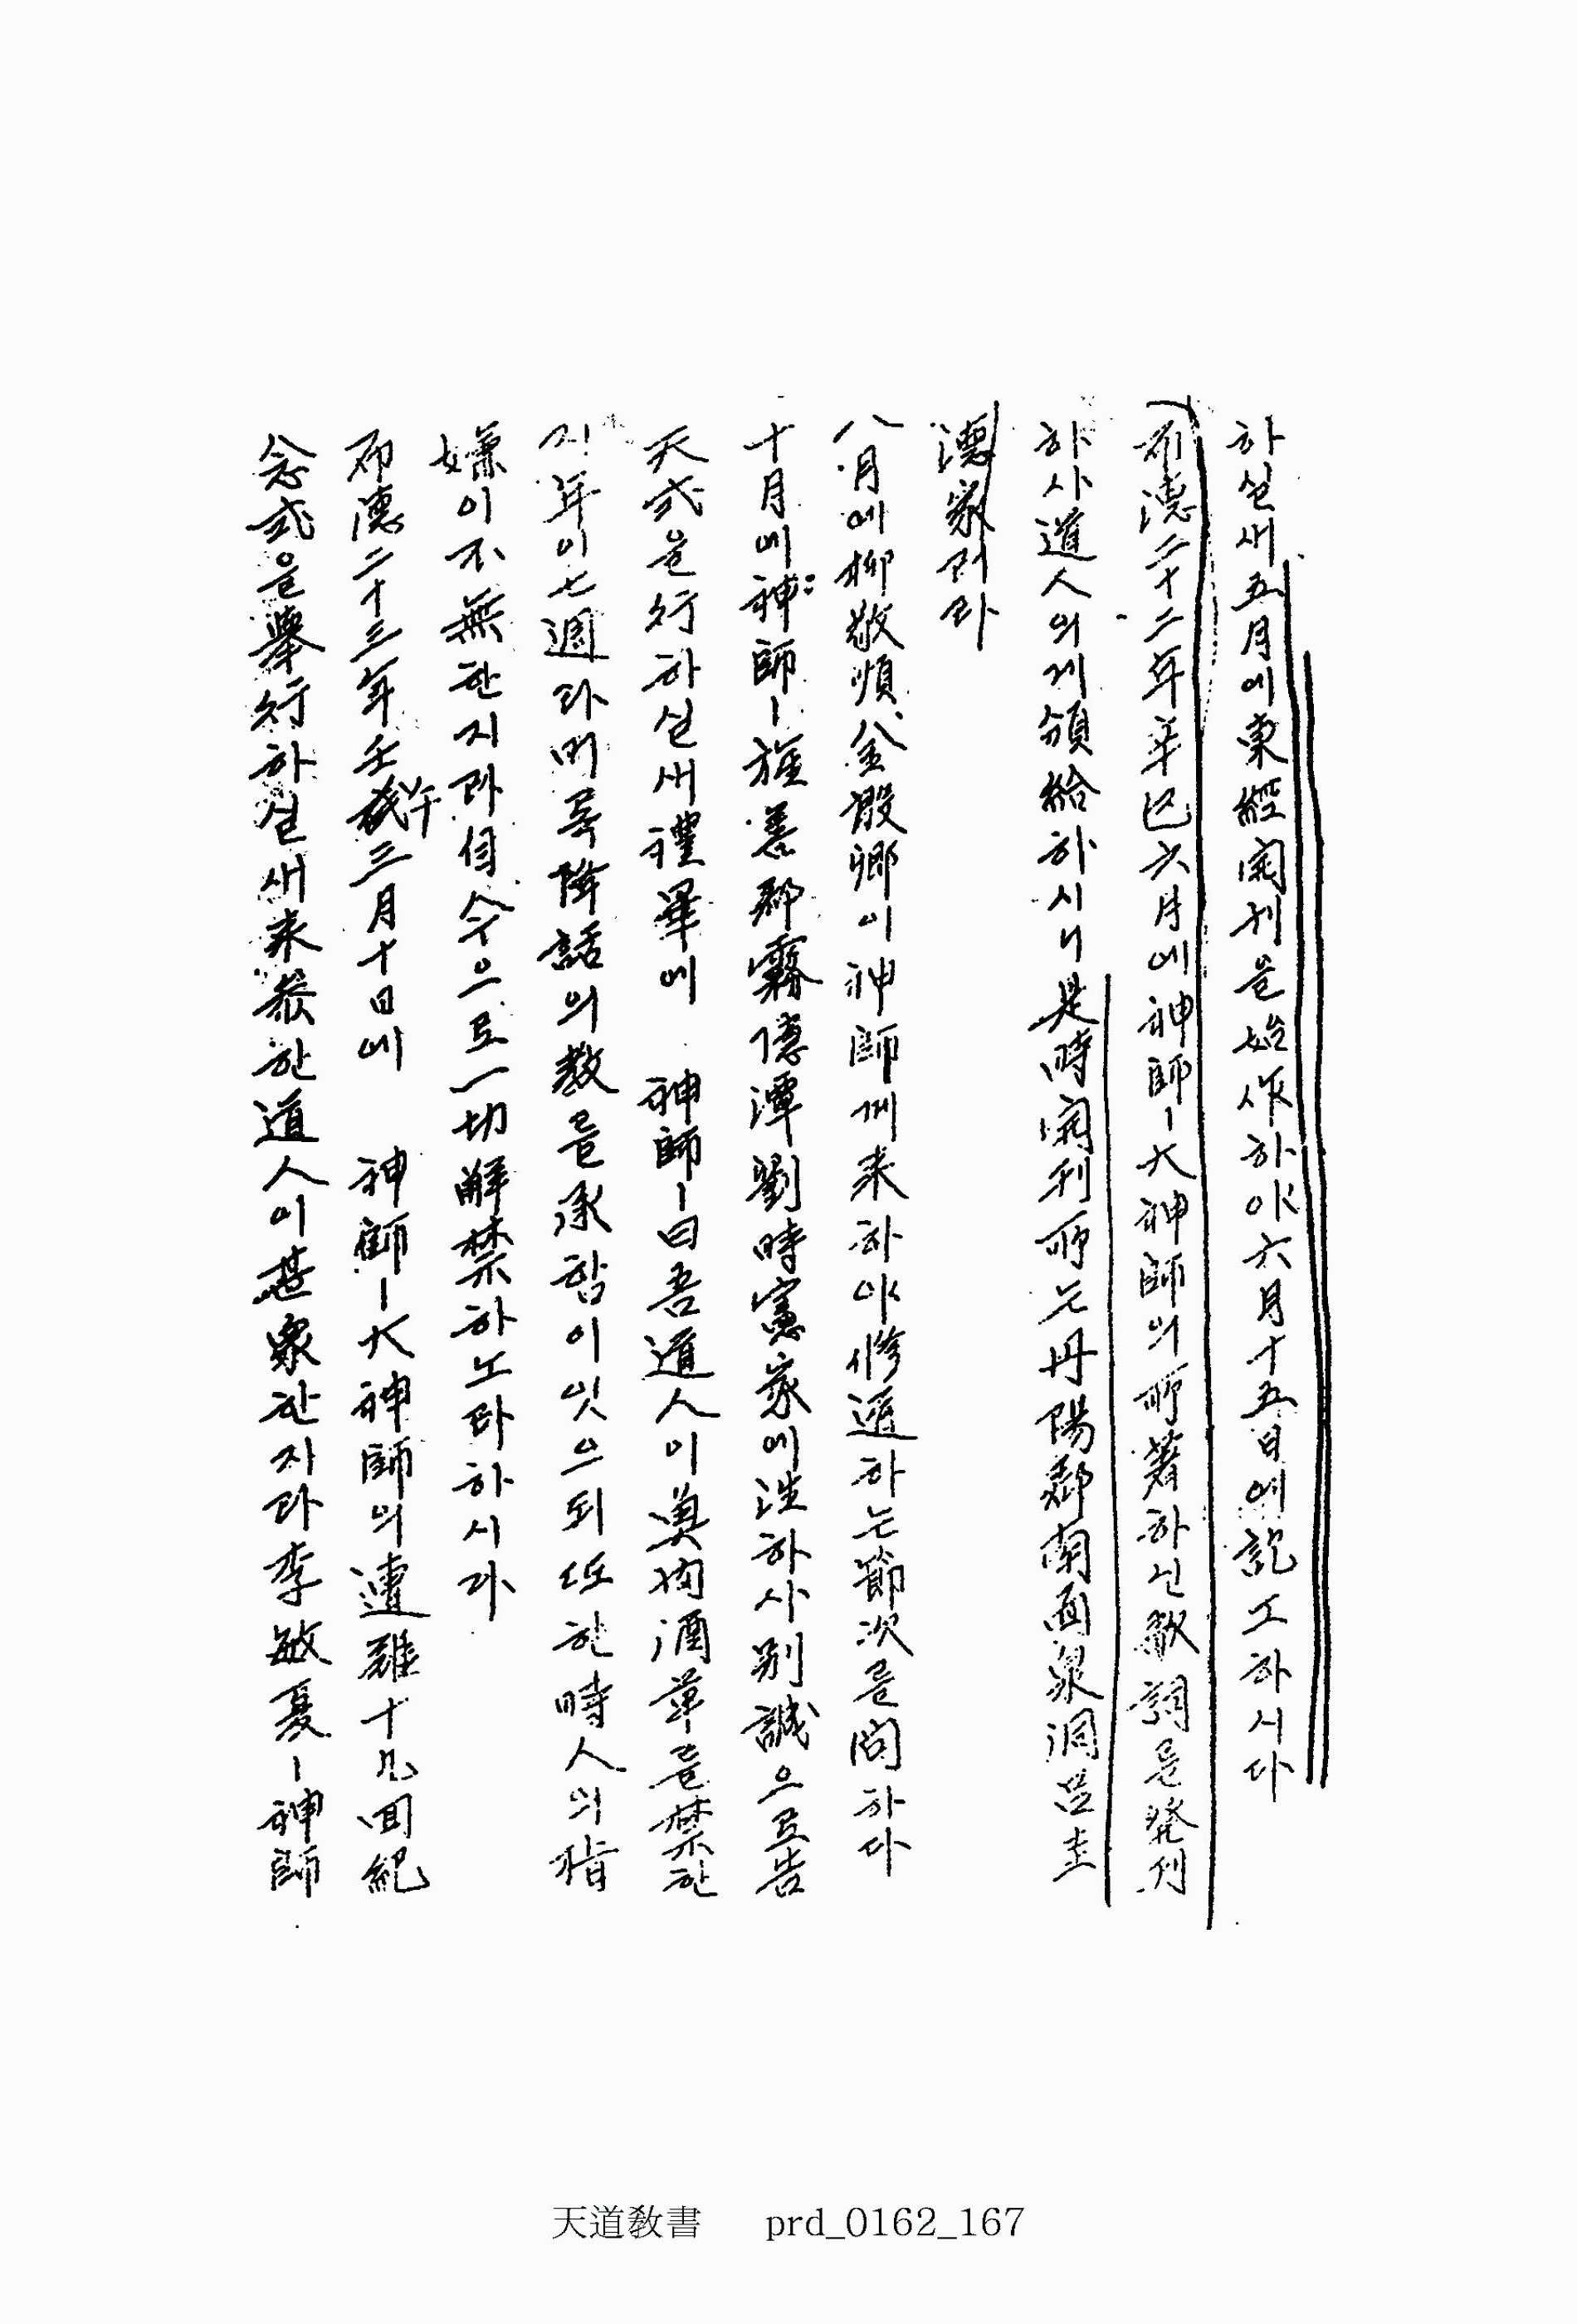 하실새五月에東經開刊을始作하야六月十五日에訖工하시다
布德二十二年辛巳六月에神師ㅣ大神師의所著하신歌詞를發刊
하사道人의게頒給하시니是時開刊所는丹陽郡南面泉洞呂圭
德家러라
八月에柳敬順金殷卿이神師께來하야修道하는節次를問하다
十月에神師ㅣ旌善郡霧傿潭劉時憲家에往하사別誠으로告
天式을行하실새禮畢에 神師ㅣ曰吾道人이魚肉酒草를禁한
지年이七週라며록降話의敎를承함이잇으되近한時人의指
嫌이不無한지라自今으로一切解禁하노라하시다
布德二十三年壬午三月十日에 神師ㅣ大神師의遭難十九回紀
念式을擧行하실새來參한道人이甚衆한지라李敏夏ㅣ神師
天道敎書 prd_0162_167